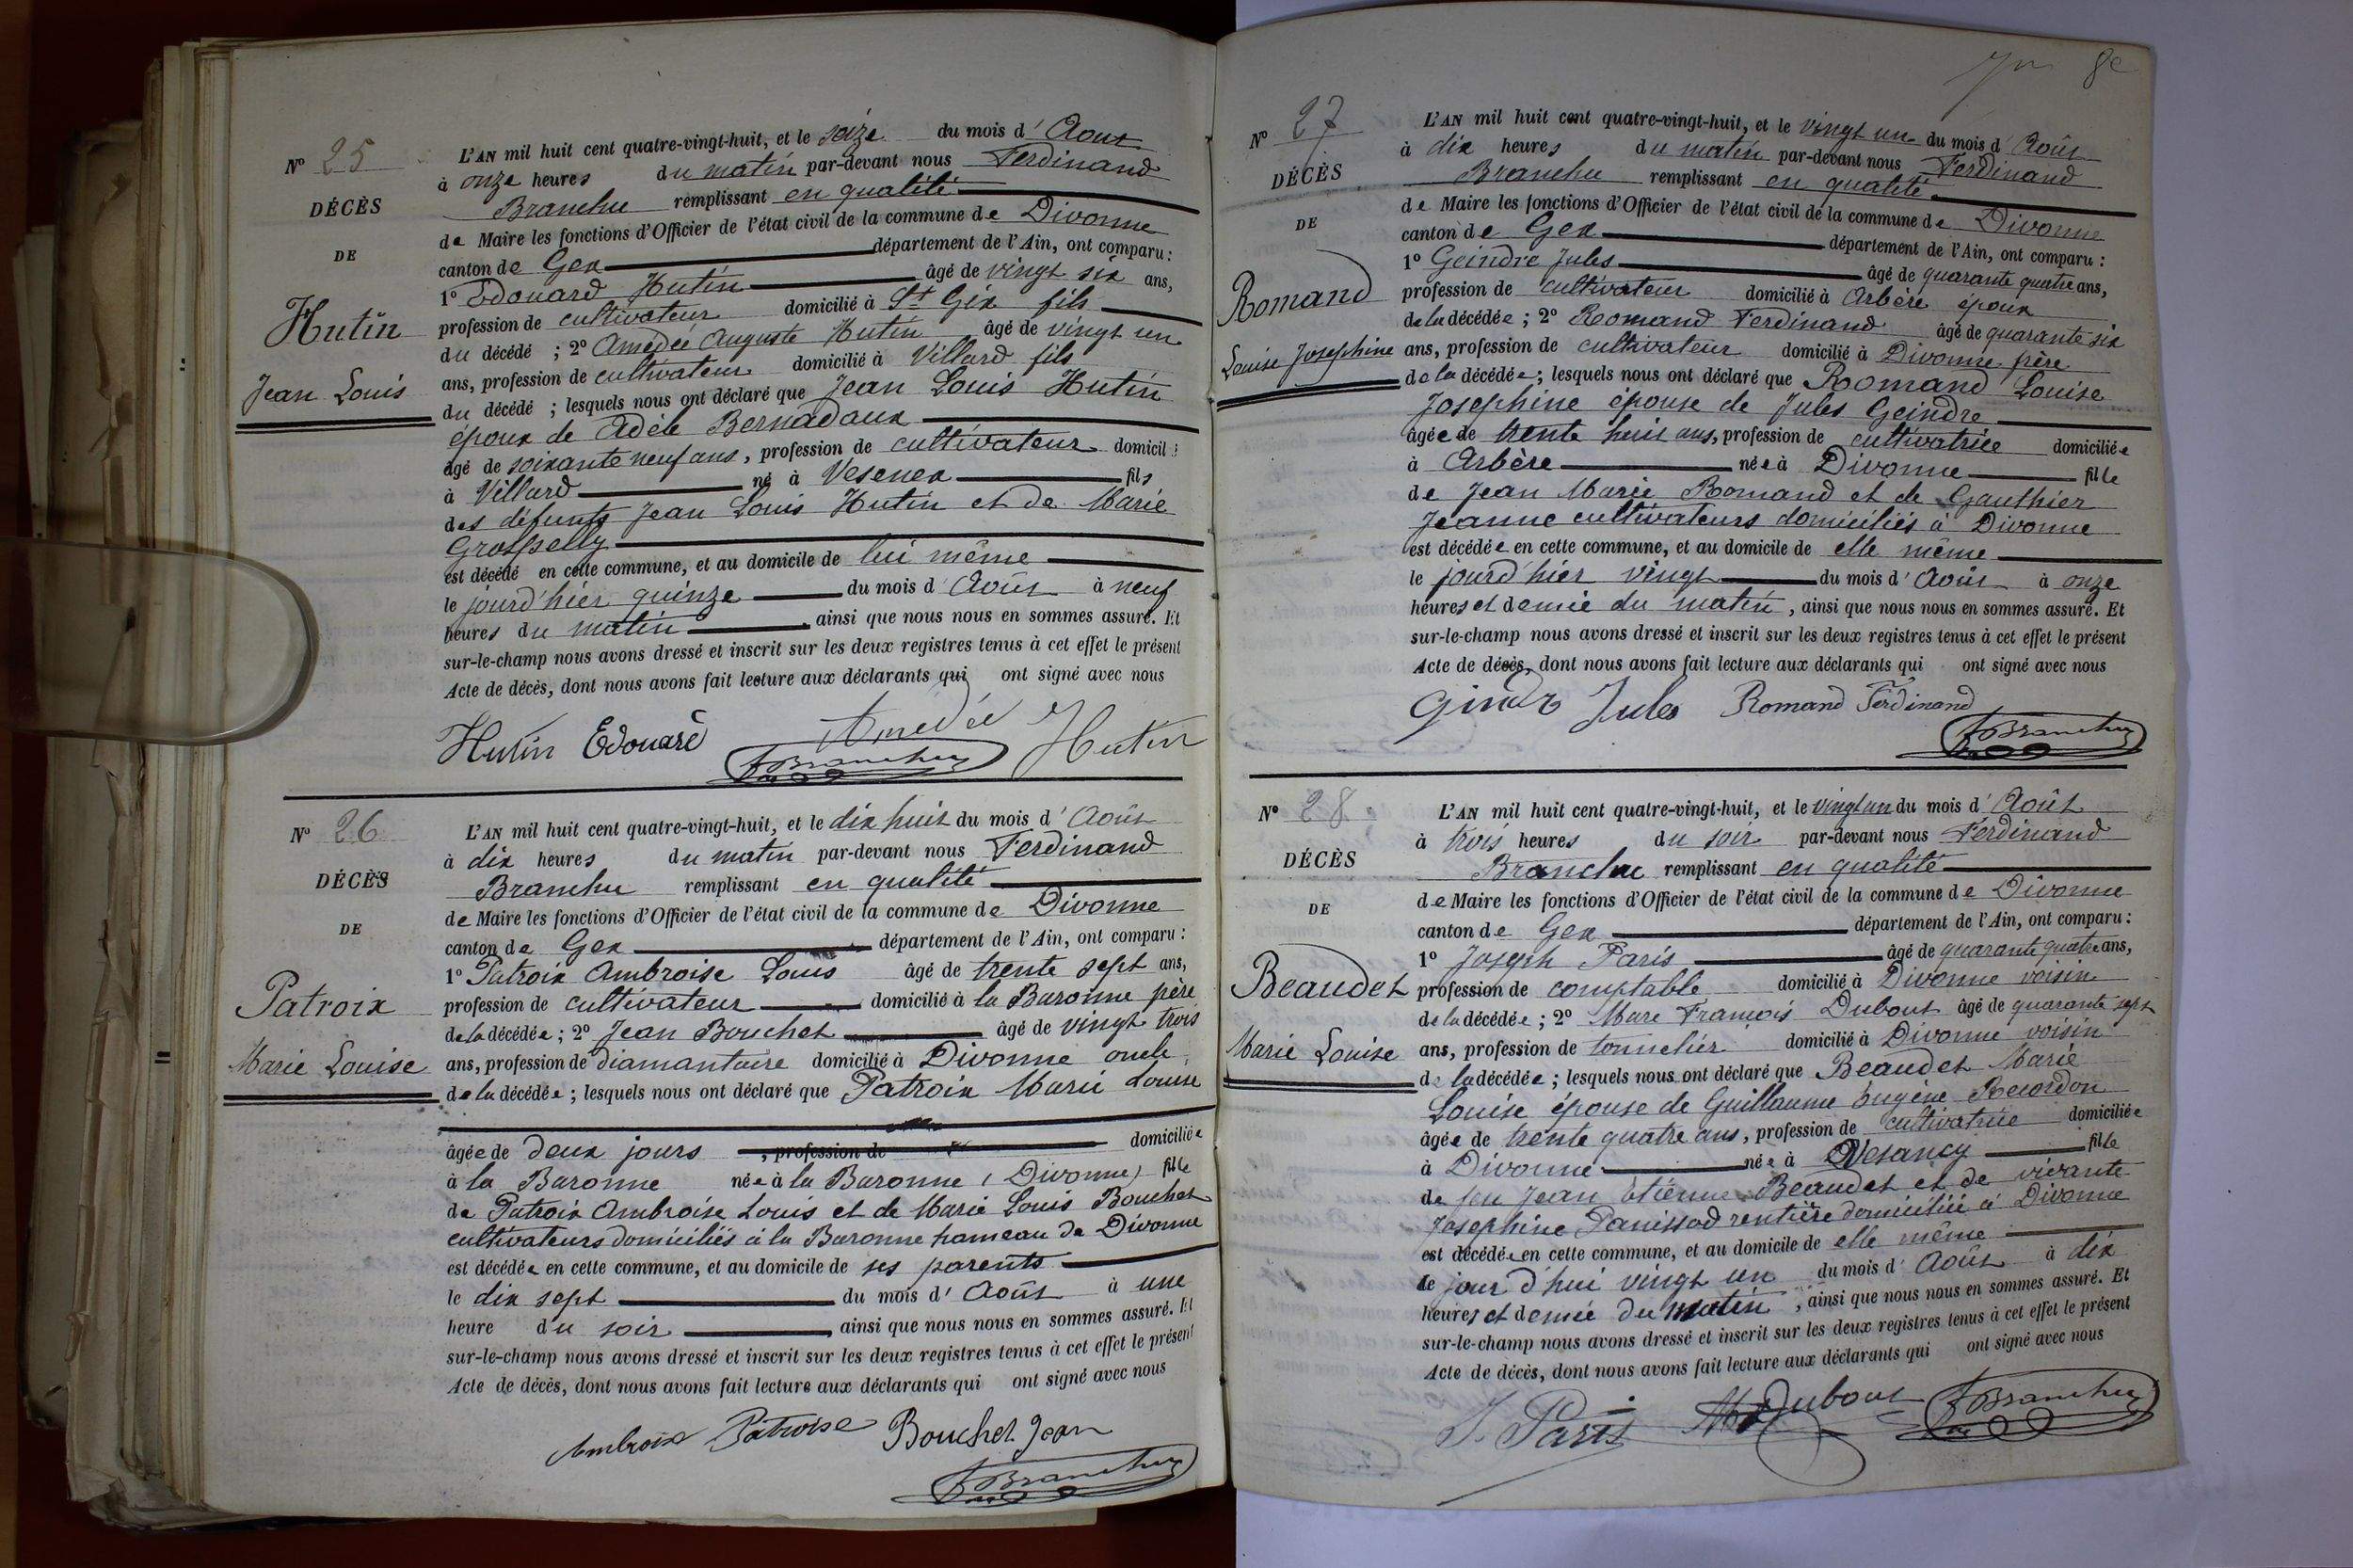 Nº 25
DÉCÈS
DE
Hutin
Jean Louis
L'AN mil huit cent quatre-vingt-huit, et le seize du mois d'Aout
à onze heures du matin par-devant nous Ferdinand
Branchu remplissant en qualité
de Maire les fonctions d'Officier de l'état civil de la commune de Divonne
canton de Gex département de l'Ain, ont comparu :
1º Edouard Hutin âgé de vingt six ans,
profession de cultivateur domicilié à St Gix fils
du décédé ; 2º Amédée Auguste Hutin âgé de vingt un
ans, profession de cultivateur domicilié à Villard fils
du décédé ; lesquels nous ont déclaré que Jean Louis Hutin
époux de Adèle Bernadaux
âgé de soixante neuf ans, profession de cultivateur domicilié
à Villard né à Vesenex fils
des défunts Jean Louis Hutin et de Marie
Grosfselly
est décédé en cette commune, et au domicile de lui même
le jourd'hier quinze du mois d'Août à neuf
heures du matin ainsi que nous nous en sommes assuré. Et
sur-le-champ nous avons dressé et inscrit sur les deux registres tenus à cet effet le présent
Acte de décès, dont nous avons fait lecture aux déclarants qui ont signé avec nous
Hutin Edouard Amédée Hutin
FBranchu
Nº 26
DÉCÈS
DE
Patroix
Marie Louise
L'AN mil huit cent quatre-vingt-huit, et le dix huit du mois d'Août
à dix heures du matin par-devant nous Ferdinand
Branchu remplissant en qualité
de Maire les fonctions d'Officier de l'état civil de la commune de Divonne
canton de Gex département de l'Ain, ont comparu :
1º Patroix Ambroise Louis âgé de trente sept ans,
profession de cultivateur domicilié à la Baronne père
de la décédée ; 2º Jean Bouchet âgé de vingt trois
ans, profession de diamantaire domicilié à Divonne oncle
de la décédée ; lesquels nous ont déclaré que Patroix Marie Louise
âgée de deux jours , profession de domiciliée
à la Baronne née à la Baronne (Divonne) fille
de Patroix Ambroise Louis et de Marie Louis Bouchet
cultivateurs domiciliés à la Baronne hameau de Divonne
est décédée en cette commune, et au domicile de ses parents
le dix sept du mois d'Août à une
heure du soir ainsi que nous nous en sommes assuré. Et
sur-le-champ nous avons dressé et inscrit sur les deux registres tenus à cet effet le présent
Acte de décès, dont nous avons fait lecture aux déclarants qui ont signé avec nous
Ambroise Patroise Bouchet Jean
FBranchu
Nº 27
DÉCÈS
DE
Romand
Louise Josephine
L'AN mil huit cent quatre-vingt-huit, et le vingt un du mois d'Août
à dix heures du matin par-devant nous Ferdinand
Branchu remplissant en qualité
de Maire les fonctions d'Officier de l'état civil de la commune de Divonne
canton de Gex département de l'Ain, ont comparu :
1º Geindre Jules âgé de quarante quatre ans,
profession de cultivateur domicilié à Arbère époux
de la décédée ; 2º Romand Ferdinand âgé de quarante six
ans, profession de cultivateur domicilié à Divonne frère
de la décédée ; lesquels nous ont déclaré que Romand Louise
Josephine épouse de Jules Geindre
âgée de trente huit ans, profession de cultivatrice domiciliée
à Arbère née à Divonne fille
de Jean Marie Romand et de Gauthier
Jeanne cultivateurs domiciliés à Divonne
est décédée en cette commune, et au domicile de elle même
le jourd'hier vingt du mois d'Août à onze
heures et demie du matin, ainsi que nous nous en sommes assuré. Et
sur-le-champ nous avons dressé et inscrit sur les deux registres tenus à cet effet le présent
Acte de décès, dont nous avons fait lecture aux déclarants qui ont signé avec nous
Jules Romand Ferdinand
FBranchu
Nº 28
DÉCÈS
DE
Beaudet
Marie Louise
L'AN mil huit cent quatre-vingt-huit, et le vingt un du mois d'Août
à trois heures du soir par-devant nous Ferdinand
Branchu remplissant en qualité
de Maire les fonctions d'Officier de l'état civil de la commune de Divonne
canton de Gex département de l'Ain, ont comparu :
1º Joseph Paris âgé de quarante quatre ans,
profession de comptable domicilié à Divonne voisin
de la décédée ; 2º Marc François Dubout âgé de quarante sept
ans, profession de tonnelier domicilié à Divonne voisin
de la décédée ; lesquels nous ont déclaré que Beaudet Marie
Louise épouse de Guillaume Eugène Recordon
âgée de trente quatre ans, profession de cultivatrice domiciliée
à Divonne née à Vesancy fille
de feu Jean Etienne Beaudet et de vivante
Josephine Panissod rentière domiciliée à Divonne
est décédée en cette commune, et au domicile de elle même
le jour d'hui vingt un du mois d'Août à dix
heures et demie du matin, ainsi que nous nous en sommes assuré. Et
sur-le-champ nous avons dressé et inscrit sur les deux registres tenus à cet effet le présent
Acte de décès, dont nous avons fait lecture aux déclarants qui ont signé avec nous
J. Paris Dubout FBranchu